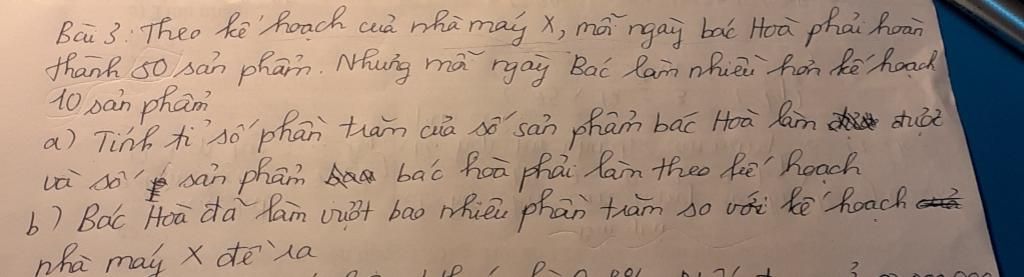 Bài 3: Theo kế hoạch của nhà máy X, mỗi ngày bác Hoà phải hoàn
thành 50 sản phẩm. Nhưng mỗi ngày Bác làm nhiều hơn kế hoạch
10 sản phẩm
a) Tính tỉ số phần trăm của số sản phẩm bác Hoà làm được
và số sản phẩm bác hoà phải làm theo kế hoạch
b) Bác Hoà đã làm vượt bao nhiêu phần trăm so với kế hoạch
nhà máy X đề ra